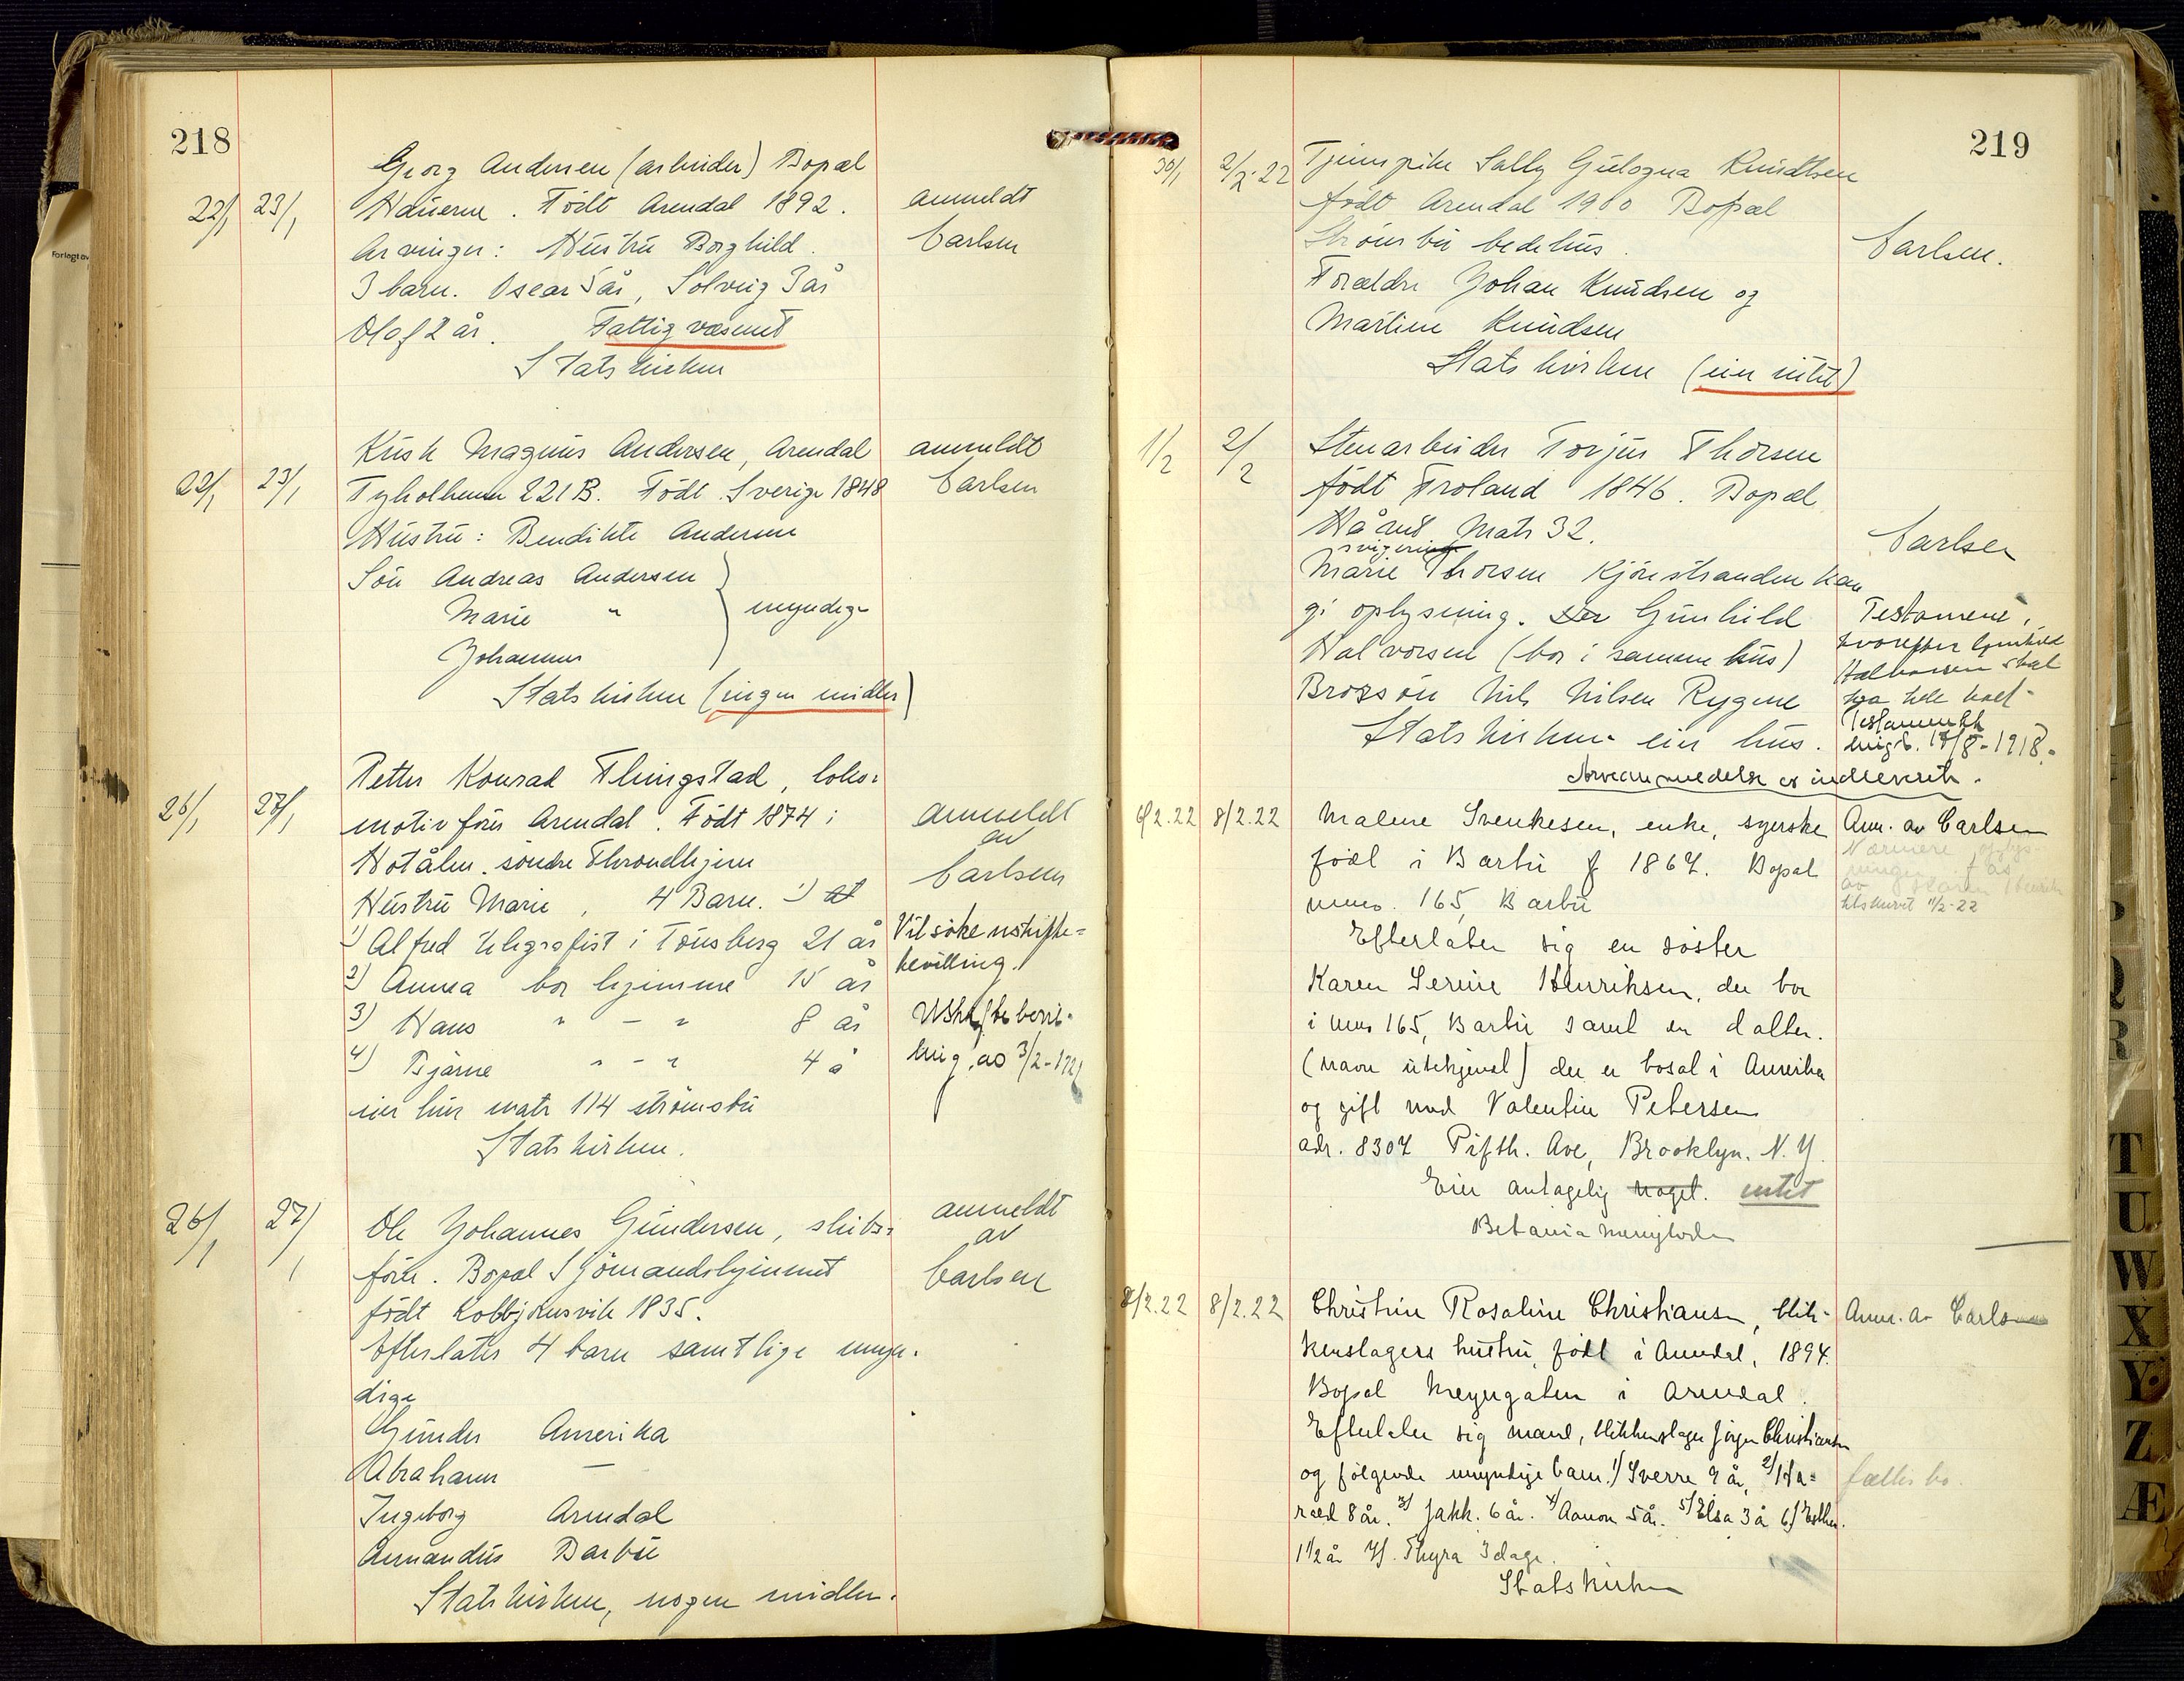 218
Georg Andersen (arbeider) Bopæl
22/1 23/1 Födt Arendal 1892. anmeldt
Arvinger: Hustru Borghild. Carlsen
3 barn. Oscar 5 år, Solveig 3 år
Olaf 2 år. Fattigvæsenet
Statskirken
Kusk Magnus Andersen, Arendal anmeldt
22/1 23/1 Tyholmen 221 B. Födt Sverige 1848 Carlsen
Hustru: Bendikte Andersen
Sön Andreas Andersen
Marie " myndige
Johannes
Statskirken (ingen midler)
Petter Konrad Flingstad, loko-
26/1 27/1 motivförer Arendal. Födt 1874 i anmeldt
Hotålen. söndre Throndhjem av
Hustru Marie, 4 Barn. 1) Carlsen
1) Alfred telegrafist i Tönsberg 21 år Vil söke uskifte-
bevilling.
2) Anna bor hjemme 15 år
3) Hans " - " 8 år Uskiftebevil-
4) Bjarne " - " 4 å ling. av 3/2-1922
eier hus matr 114 strömsbu
Statskirken.
26/1 27/1 Ole Johannes Gundersen, skibs- anmeldt
av
förer. Bopæl Sjömandshjemmet Carlsen
födt Kolbjörnsvik 1835.
Efterlater 4 barn samtlige myn-
dige
Gunder Amerika
Abraham —
Ingeborg Arendal
Amandus Barbu
Statskirken, nogen midler.
219
30/1 2/2-22 Tjenepike Sally Gulogna Knudtsen
födt Arendal 1900 Bopæl
Strömsbu bedehus. Carlsen.
Forældre Johan Knudsen og
Martine Knudsen
Statskirken (eier intet)
1/2 2/2 Stenarbeider Torjus Thorsen
födt Froland 1846. Bopæl
Matr 32. Carlsen
svigerinde
Marie Thorsen Kjörrstranden kan
gi oplysning. Gunhild Testament,
hvorefter Gunhild
Halvorsen (bor i samme hus) Halvorsen skal
Brorsön Nils Nilsen Rygene
Statskirken eier hus. 17/8-1918.
Arveanmeldelse er indleveret.
6/2.22 8/2.22 Malene Svenkesen, enke, syerske Anm. av Carlsen
född i Barbu 1867. Bopæl Nærmere oplys-
ninger
mno. 165, Barbu av Karen Henrik
tilskrevet 11/2-22
Efterlater sig en søster
Karen Serine Henriksen, der bor
i mno 165, Barbu samt en datter.
(navn utekjendt) der er bosat i Amerika
og gift med Valentin Petersen
adr. 8307 Fifth. Ave, Brooklyn. N.Y.
Eier antagelig noget. intet
Betania menighet
8/2.22 8/2.22 Christine Rosaline Christiansen, blik- Anm. av Carlsen
kenslagers hustru, født i Arendal, 1894.
Bopæl Meyergaten i Arendal.
Efterlater sig mand, blikkenslager Jörgen Christiansen
og følgende umyndige barn. 1/ Sverre 9 år, 2/ Ha- fælles bo
rald 8 år. 3/ Jakk. 6 år. 4/ Aamon 5 år. 5/ Elsa 3 å 6/ Esther.
1 1/2 år 7/. Thyra 3 dage.
Statskirken
T
U
W
X
Y
Z
Æ